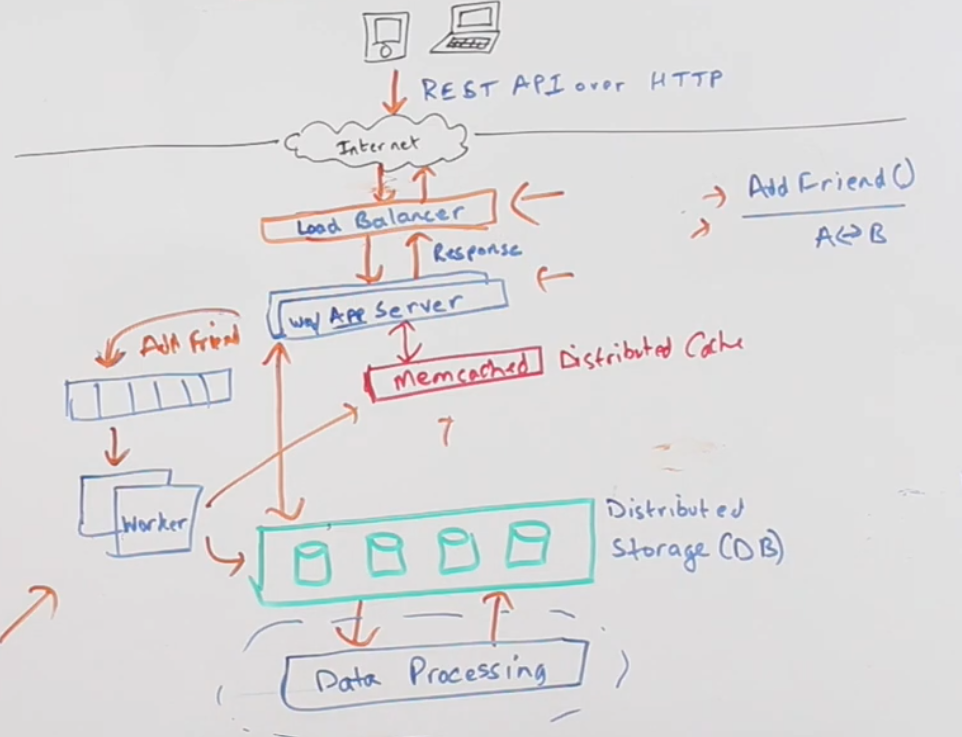 REST API over HTTP
Internet
Load Balancer
Add Friend()
A↔B
Response
App Server
Add Friend
Memcached
Distributed Cache
7
Worker
Distributed
Storage (DB)
Data Processing